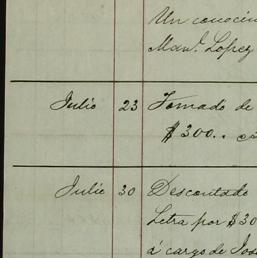 Un conocim
Man.l Lopez
Julio 23 Tomado de
$300..
Julio 30 Descontado
Letra por $30
á cargo de José